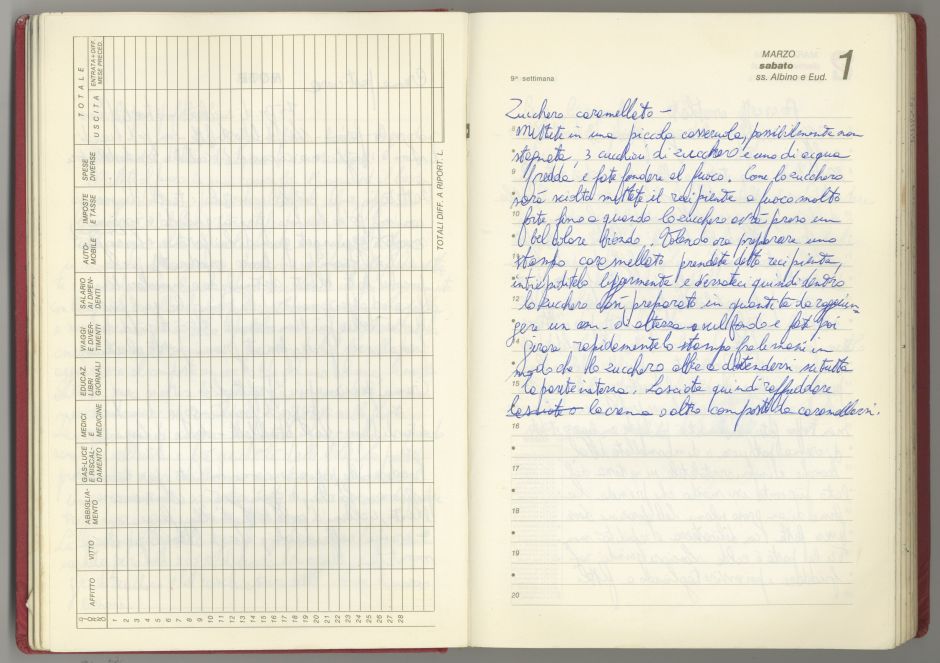 TOTALE
ENTRATA+DIFF. MESE PRECED.
USCITA
SPESE DIVERSE
IMPOSTE E TASSE
AUTO-MOBILE
SALARIO AI DIPEN-DENTI
VIAGGI E DIVER-TIMENTI
EDUCAZ. LIBRI GIORNALI
MEDICI E MEDICINE
GAS-LUCE E RISCAL-DAMENTO
ABBIGLIA-MENTO
VITTO
AFFITTO
GIORNO
1 2 3 4 5 6 7 8 9 10 11 12 13 14 15 16 17 18 19 20 21 22 23 24 25 26 27 28
TOTALI DIFF. A RIPORT. L.
9ª settimana
MARZO
sabato
ss. Albino e Eud.
1
Zucchero caramellato -
8 Mettete in una piccola casseruola, possibilmente non
stagnata, 3 cucchiai di zucchero e uno di acqua
9 fredda e fate fondere al fuoco. Come lo zucchero
sarà sciolto mettete il recipiente a fuoco molto
10 forte fino a quando lo zucchero avrà preso un
bel colore biondo. Volendo ora preparare uno
11 stampo caramellato prendete detto recipiente,
intiepiditelo leggermente e versateci quindi dentro
12 lo zucchero così preparato in quantità da raggiun-
gere un cm. di altezza sul fondo e fate poi
girare rapidamente lo stampo fra le mani in
modo che lo zucchero abbia a distendersi su tutta
15 la parete interna. Lasciate quindi raffreddare
la crema o altro composto da caramellarsi.
16
17
18
19
20